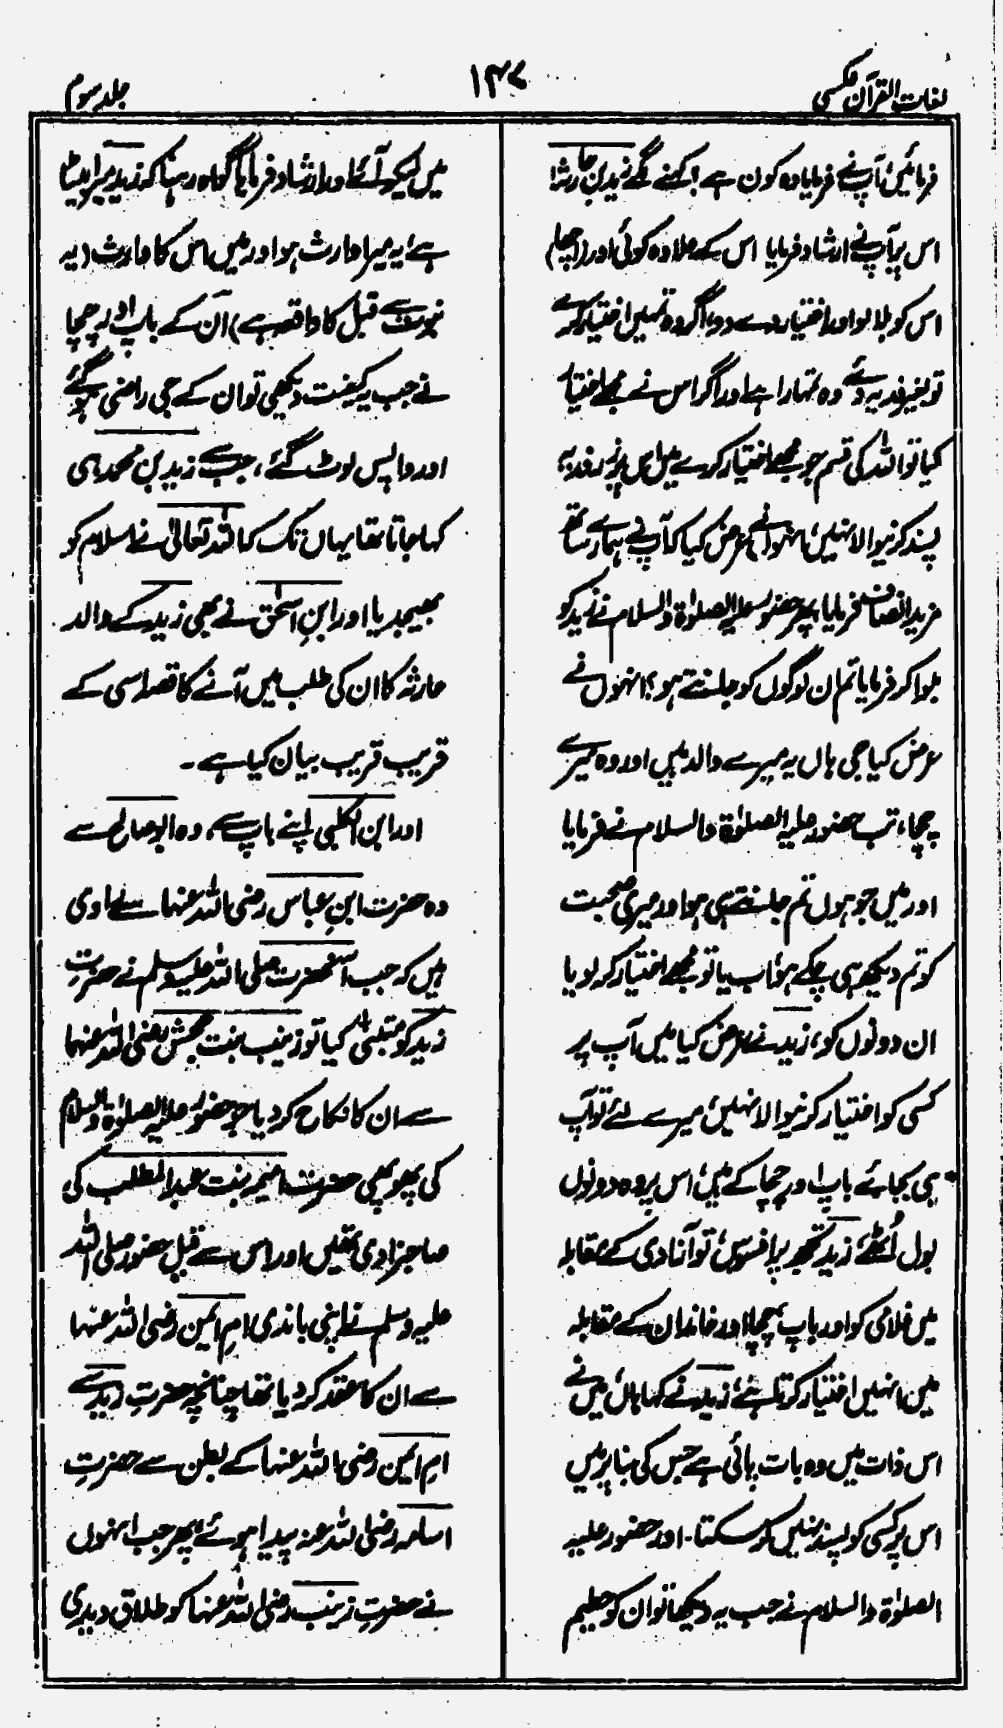 لغات القرآن عکسی
۱۴۷
جلد سوم
فرمائیں، آپ نے فرمایا وہ کون ہے؟ کہنے لگے زید بن حارثہ
اس پر آپ نے ارشاد فرمایا اس کے علاوہ کوئی اور (اچھا)
اس کو بلا لو اور اختیار دے دو، اگر وہ تمہیں اختیار کرے
تو بغیر فدیہ دئے وہ تمہارا ہے اور اگر اس نے مجھے اختیار
کیا تو اللہ کی قسم جو مجھے اختیار کرے میں اس پر زرِ فدیہ
پسند کرنیوالا نہیں، انہوں نے عرض کیا کہ آپ نے ہمارے ساتھ
مزید انصاف فرمایا، پھر حضور علیہ الصلوٰۃ والسلام نے زید کو
بلوا کر فرمایا تم ان لوگوں کو جانتے ہو؟ انہوں نے
عرض کیا جی ہاں یہ میرے والد ہیں اور وہ میرے
چچا، تب حضور علیہ الصلوٰۃ والسلام نے فرمایا
اور میں جو ہوں تم جانتے ہی ہو اور میری صحبت
کو تم دیکھ ہی چکے ہو، اب یا تو مجھے اختیار کر لو یا
ان دونوں کو، زید نے عرض کیا میں آپ پر
کسی کو اختیار کرنیوالا نہیں، میرے لئے تو آپ
ہی بجائے باپ اور چچا کے ہیں، اس پر وہ دونوں
بول اُٹھے، زید تجھ پر افسوس، تو آزادی کے مقابلہ
میں غلامی کو اور باپ، چچا اور خاندان کے مقابلہ
میں انہیں اختیار کرتا ہے، زید نے کہا ہاں میں نے
اس ذات میں وہ بات پائی ہے جس کی بنا پر میں
اس پر کسی کو پسند نہیں کر سکتا۔ اور حضور علیہ
الصلوٰۃ والسلام نے جب یہ دیکھا تو ان کو حطیم
میں لیکر آئے اور ارشاد فرمایا گواہ رہنا کہ زید میرا بیٹا
ہے، یہ میرا وارث ہو اور میں اس کا وارث (یہ
نبوت سے قبل کا واقعہ ہے) ان کے باپ اور چچا
نے جب یہ کیفیت دیکھی تو ان کے جی راضی ہو گئے
اور واپس لوٹ گئے، جب سے زید بن محمد ہی
کہا جاتا تھا یہاں تک کہ اللہ تعالیٰ نے اسلام کو
بھیجدیا اور ابنِ اسحٰق نے بھی زید کے والد
حارثہ کا ان کی طلب میں آنے کا قصہ اسی کے
قریب قریب بیان کیا ہے۔
اور ابن الکلبی اپنے باپ سے، وہ ابو صالح سے
وہ حضرت ابنِ عباس رضی اللہ عنہما سے راوی
ہیں کہ جب آنحضرت صلی اللہ علیہ وسلم نے حضرتِ
زید کو متبنیٰ کیا تو زینب بنت جحش رضی اللہ عنہما
سے ان کا نکاح کر دیا جو حضور علیہ الصلوٰۃ والسلام
کی پھوپھی حضرت امیمہ بنت عبد المطلب کی
صاحبزادی تھیں اور اس سے قبل حضور صلی اللہ
علیہ وسلم نے اپنی باندی ام ایمن رضی اللہ عنہا
سے ان کا عقد کر دیا تھا چنانچہ حضرتِ زید سے
ام ایمن رضی اللہ عنہا کے بطن سے حضرتِ
اسامہ رضی اللہ عنہ پیدا ہوئے، پھر جب انہوں
نے حضرتِ زینب رضی اللہ عنہا کو طلاق دیدی